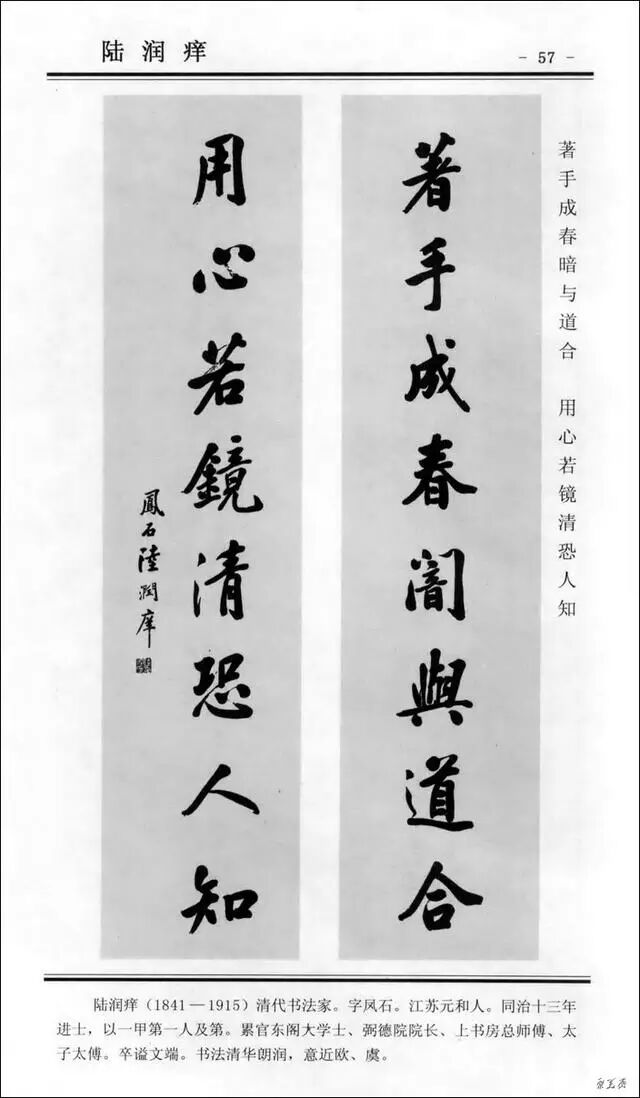 陆润痒
- 57 -
著手成春暗与道合 用心若镜清恐人知
著手成春闇與道合
用心若鏡清恐人知
鳳石陸潤庠
陆润痒（1841—1915）清代书法家。字凤石。江苏元和人。同治十三年
进士，以一甲第一人及第。累官东阁大学士、弼德院院长、上书房总师傅、太
子太傅。卒谥文端。书法清华朗润，意近欧、虞。